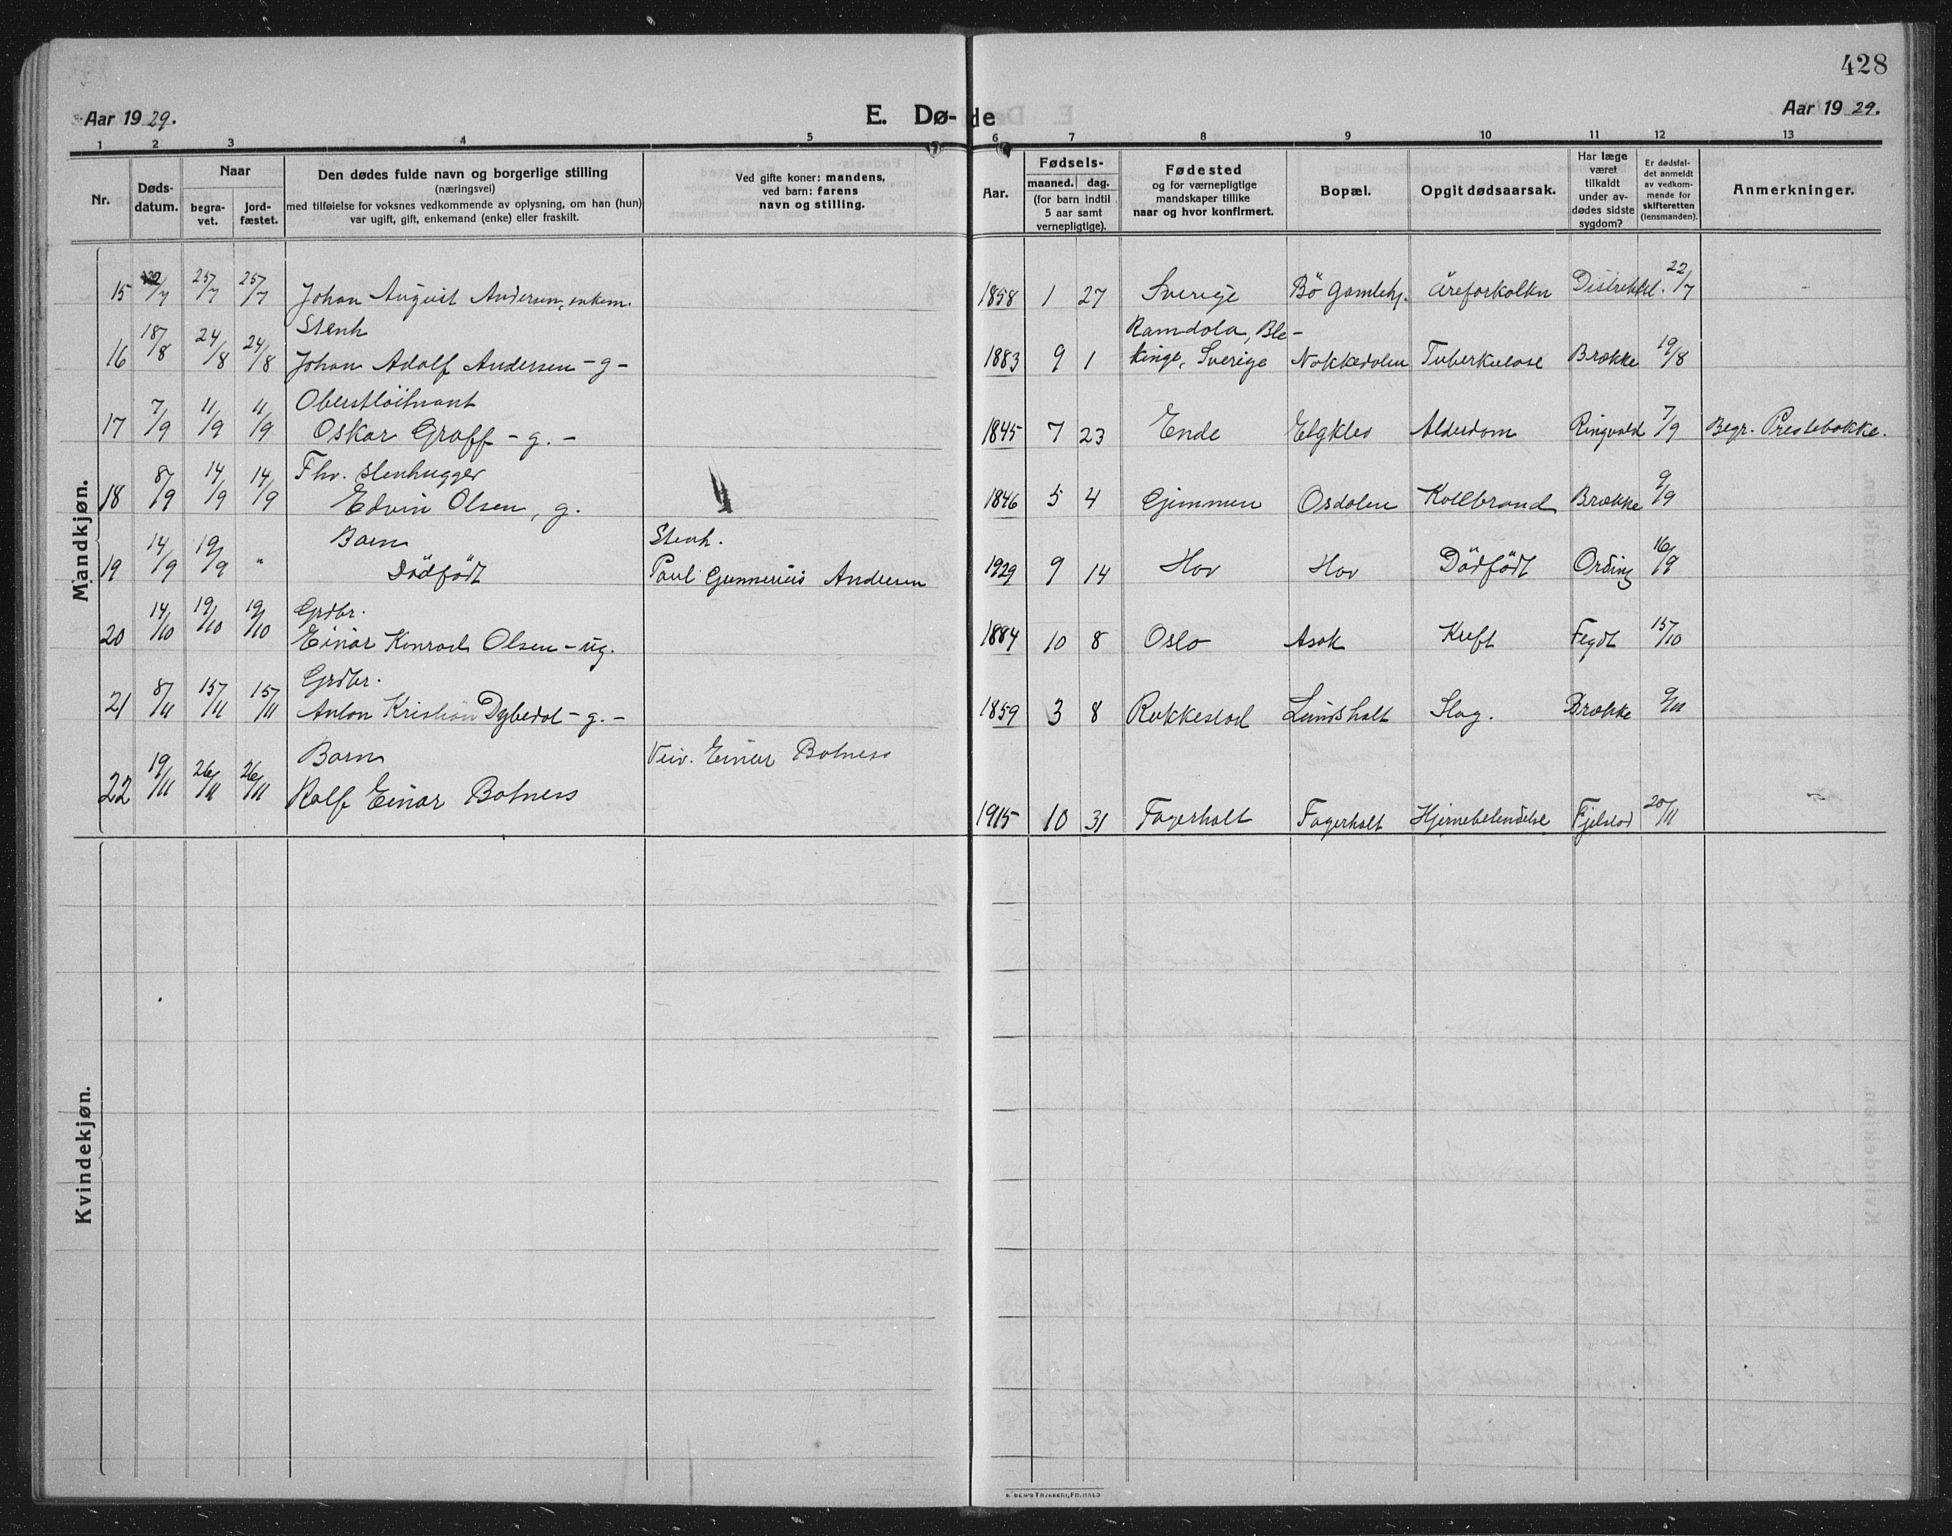 428
Aar 1929.
E. Dø-de
Aar 1929.
1 2 3 4 5 6 7 8 9 10 11 12 13
Nr.
Døds-datum.
Naar
begra-vet.
jord-fæstet.
Den dødes fulde navn og borgerlige stilling
(næringsvei)
med tilføielse for voksnes vedkommende av oplysning, om han (hun)
var ugift, gift, enkemand (enke) eller fraskilt.
Ved gifte koner: mandens,
ved barn: farens
navn og stilling.
Aar.
Fødsels-
maaned. dag.
(for barn indtil
5 aar samt
vernepligtige).
Fødested
og for værnepligtige
mandskaper tillike
naar og hvor konfirmert.
Bopæl.
Opgit dødsaarsak.
Har læge
været
tilkaldt
under av-
dødes sidste
sygdom?
Er dødsfal-
det anmeldt
av vedkom-
mende for
skifteretten
(lensmanden).
Anmerkninger.
Mandkjøn.
15 22/7 25/7 25/7 Johan August Andersen, enkem. 1858 1 27 Sverige Bö gamlehj. Åreforkalkn Distriktsl. 22/7
Stenh Ramdala, Ble-
16 18/8 24/8 24/8 Johan Adolf Andersen - g - 1883 9 1 kinge, Sverige Nokkedalen Tuberkulose Brække 19/8
Oberstløitnant
17 7/9 11/9 11/9 Oskar Graff - g. - 1845 7 23 Ende Elgklev Alderdom Ringvold 7/9 Begr. Prestebakke.
Fhv. stenhugger
18 8/9 14/9 14/9 Edvin Olsen, g. 1846 5 4 Gjimmen Osdalen Koldbrand Brække 9/9
Barn Stenh.
19 14/9 19/9 " Dödfödt Paul Gunnerius Andersen 1929 9 14 Hov Hov Dödfödt Ording 16/9
Grdbr.
20 14/10 19/10 19/10 Einar Konrad Olsen - ug. 1884 10 8 Oslo Asak Kræft Fegdt 15/10
Grdbr.
21 8/11 15/11 15/11 Anton Kristian Dybedal - g. - 1859 3 8 Rakkestad Lundsholt Slag. Brække 9/11
Barn Veiv. Einar Botness
22 19/11 26/11 26/11 Rolf Einar Botness 1915 10 31 Fagerholt Fagerholt Hjernebetendelse Fjelstad 20/11
Kvindekjøn.